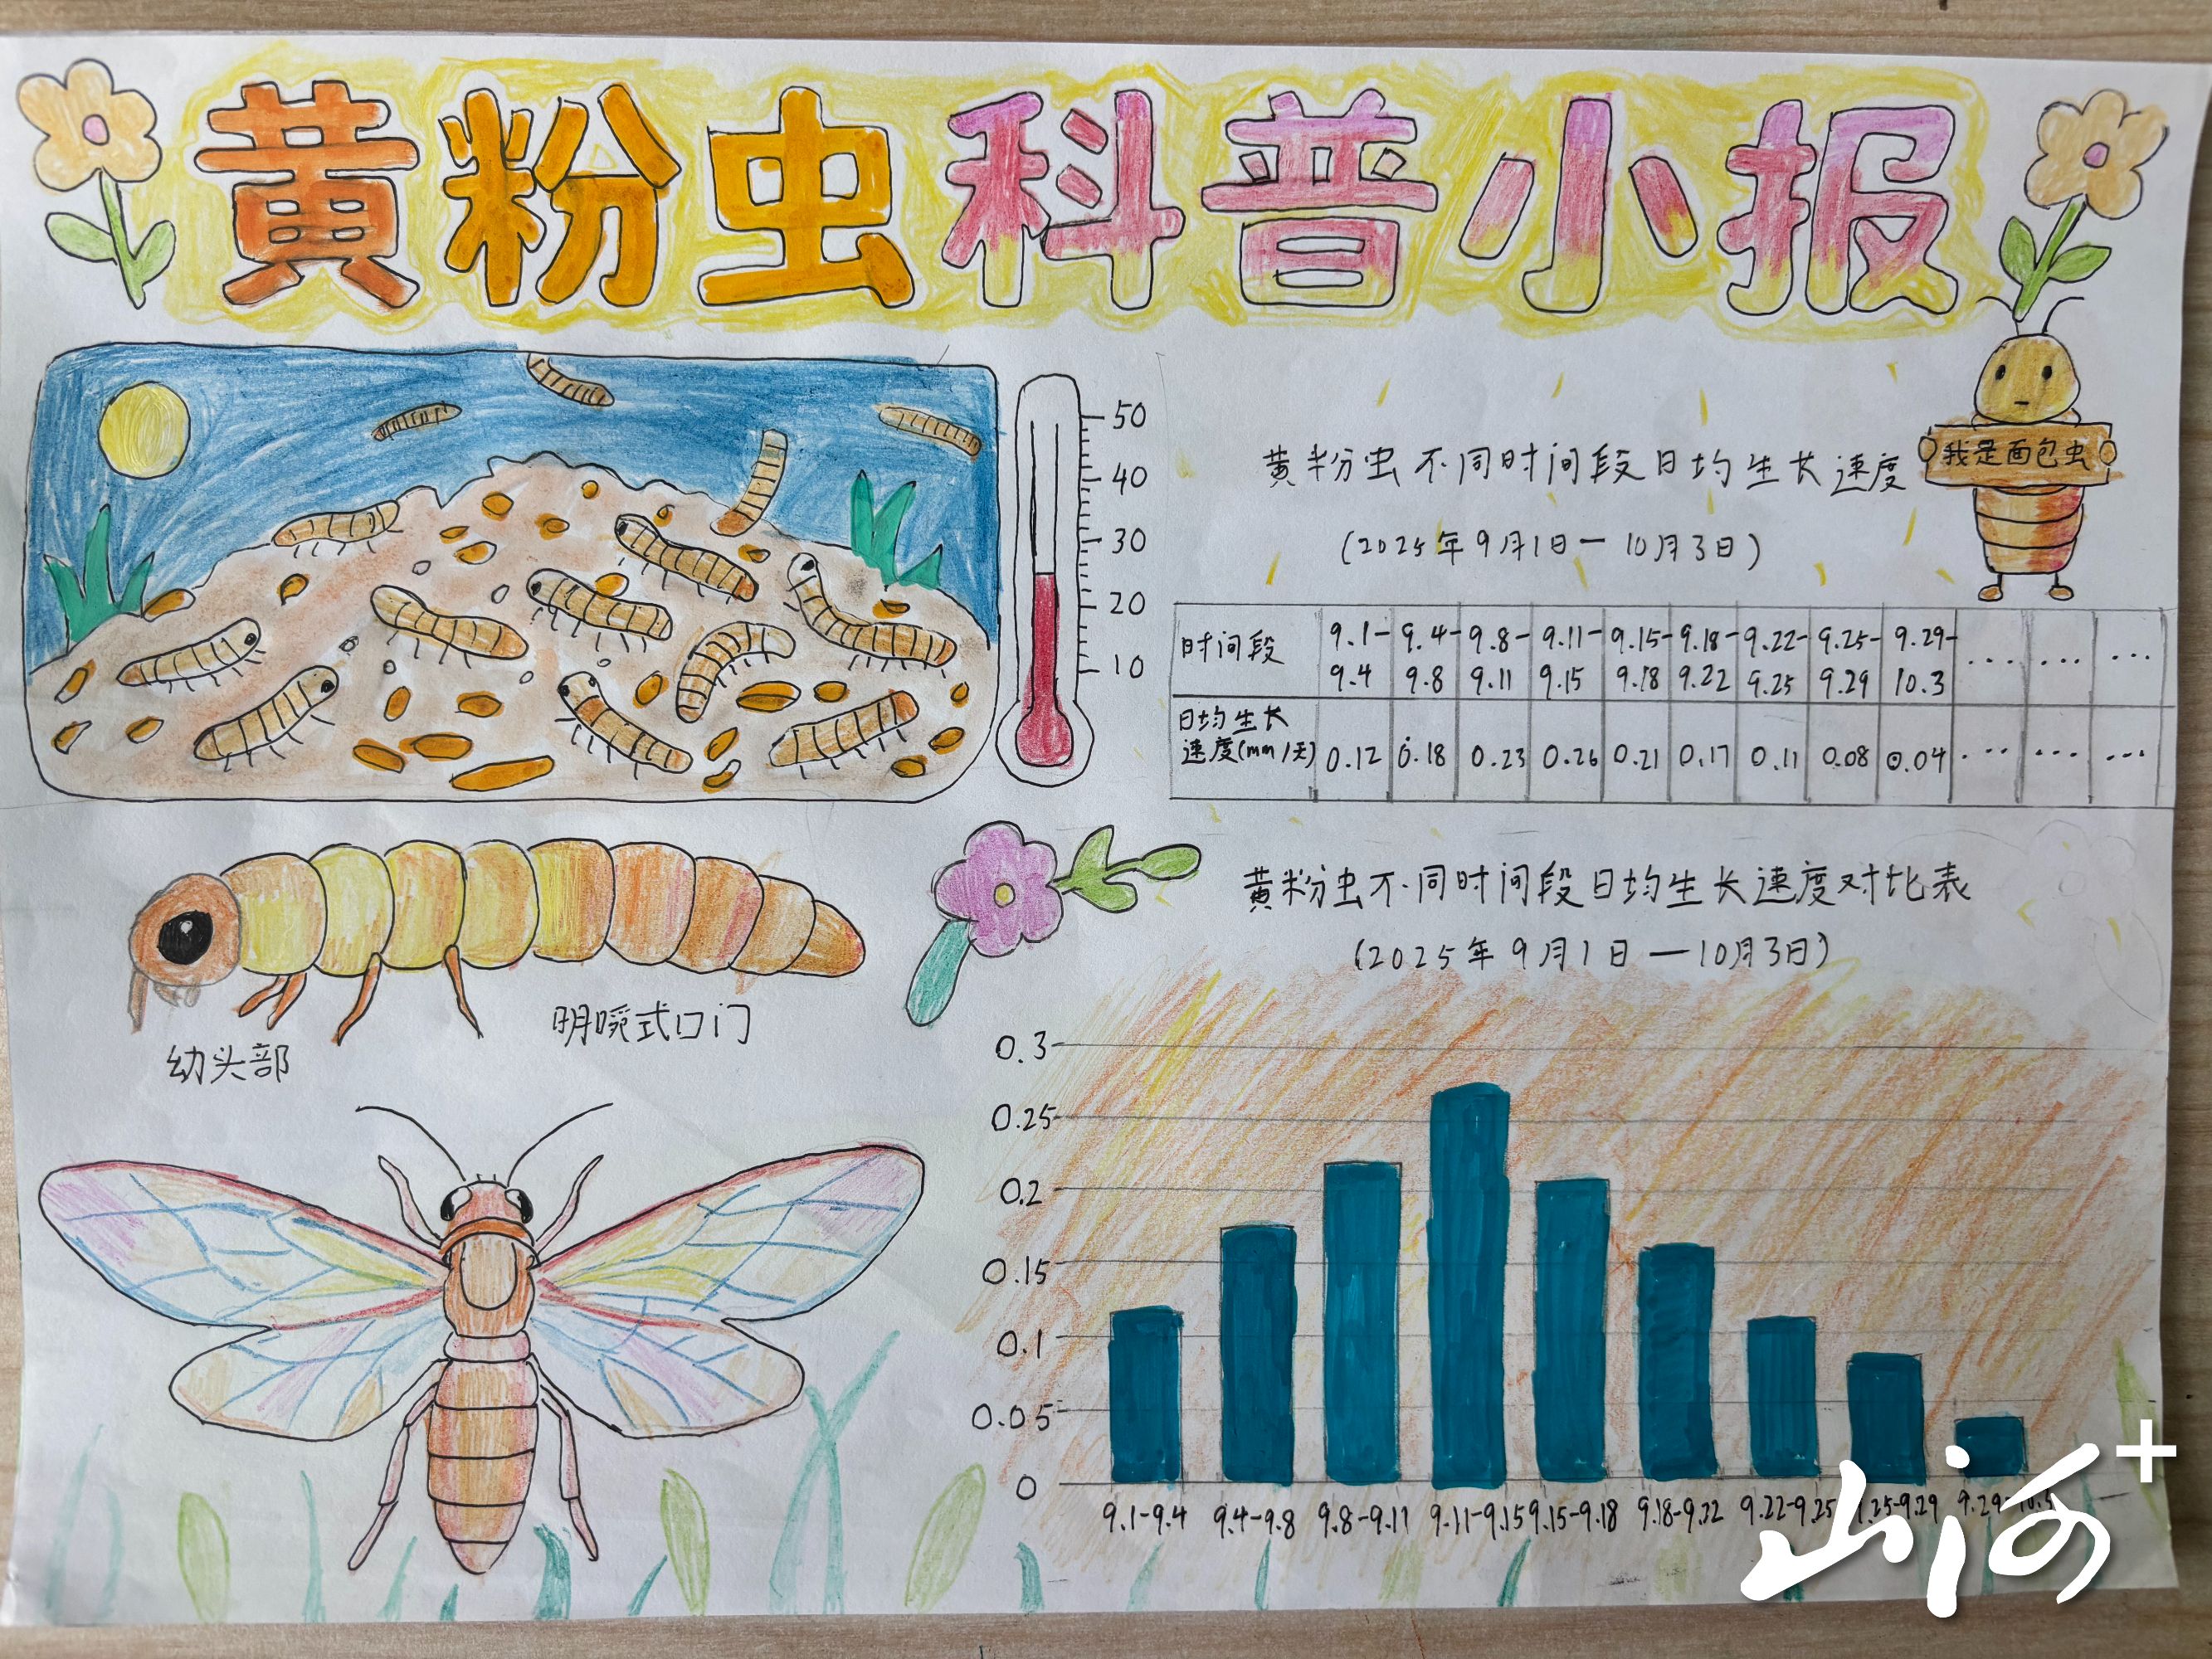 黄粉虫科普小报
50
40
30
20
10
我是面包虫
黄粉虫不同时间段日均生长速度
(2025年9月1日—10月3日)
时间段 9.1-9.4 9.4-9.8 9.8-9.11 9.11-9.15 9.15-9.18 9.18-9.22 9.22-9.25 9.25-9.29 9.29-10.3 ... ... ...
日均生长速度(mm/天) 0.12 0.18 0.23 0.26 0.21 0.17 0.11 0.08 0.04 ... ... ...
幼头部
明啘式口门
黄粉虫不同时间段日均生长速度对比表
(2025年9月1日—10月3日)
0.3
0.25
0.2
0.15
0.1
0.05
0
9.1-9.4 9.4-9.8 9.8-9.11 9.11-9.15 9.15-9.18 9.18-9.22 9.22-9.25 9.25-9.29 9.29-10.3
山河+